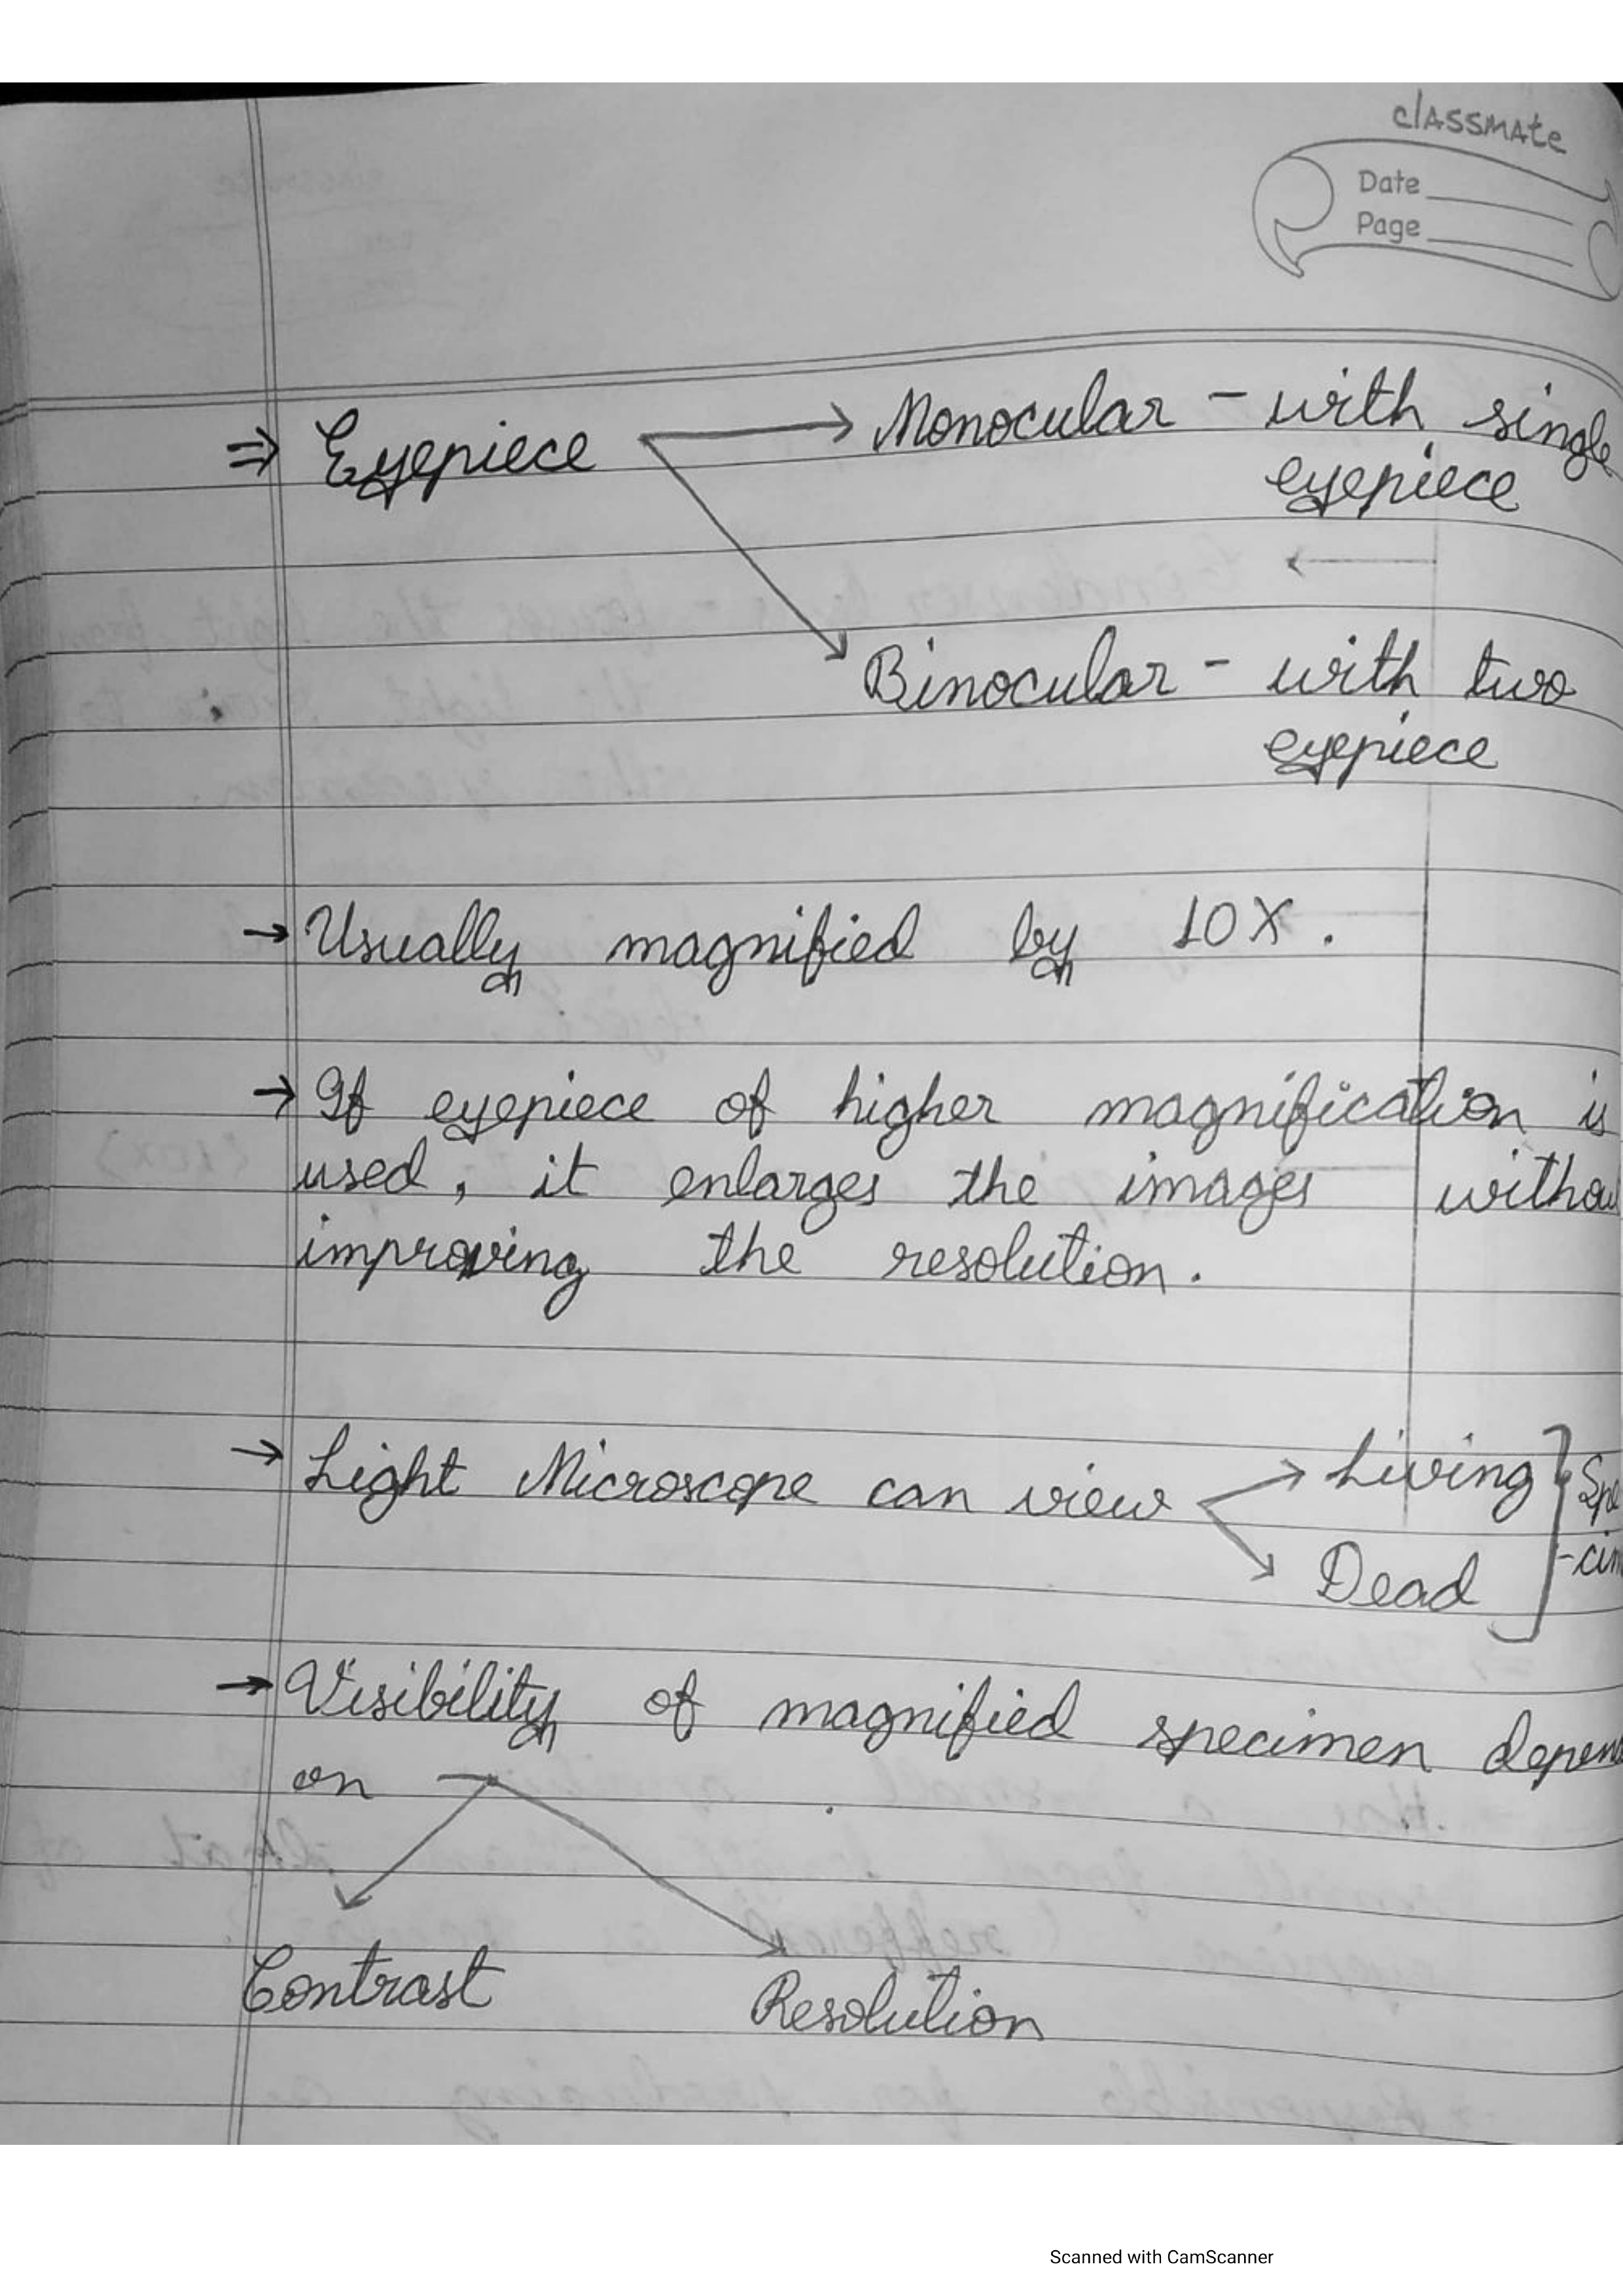 classmate
Date
Page
⇒ Eyepiece → Monocular - with single
eyepiece
Binocular - with two
eyepiece
→ Usually magnified by 10X.
→ If eyepiece of higher magnification is
used, it enlarges the images
improving the resolution.
→ Light Microscope can view → Living
Dead
→ Visibility of magnified specimen
on
Contrast
Resolution
Scanned with CamScanner